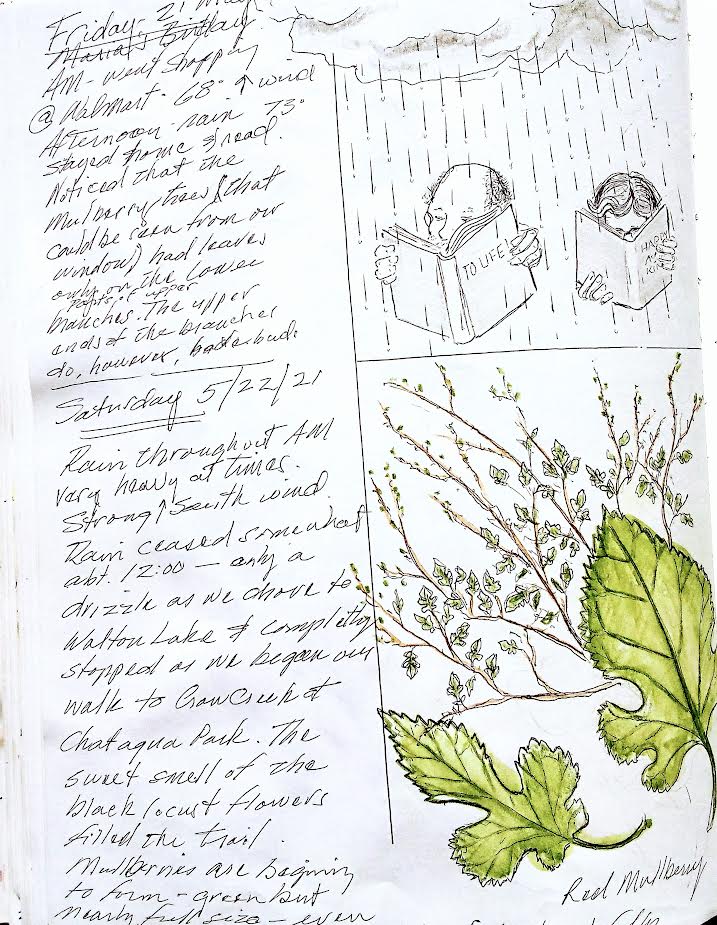 Friday - 21
Maria's Birthday
AM - went shopping
@ Walmart. 68° ↑ wind
Afternoon - rain 73°
stayed home & read.
Noticed that the
mulberry trees (that
could be seen from our
window) had leaves
only on the lower
parts of upper
branches. The upper
ends of the branches
do, however, buds.
Saturday 5/22/21
Rain throughout AM
very heavy at times.
Strong ↑ South wind.
Rain ceased somewhat
abt. 12:00 — only a
drizzle as we drove to
Walton Lake & completly
stopped as we began our
walk to Crow Creek &
Chataqua Park. The
sweet smell of the
black locust flowers
filled the trail.
Mulberries are begining
to form - green but
nearly full size - even
TO LIFE!
Red Mulberry